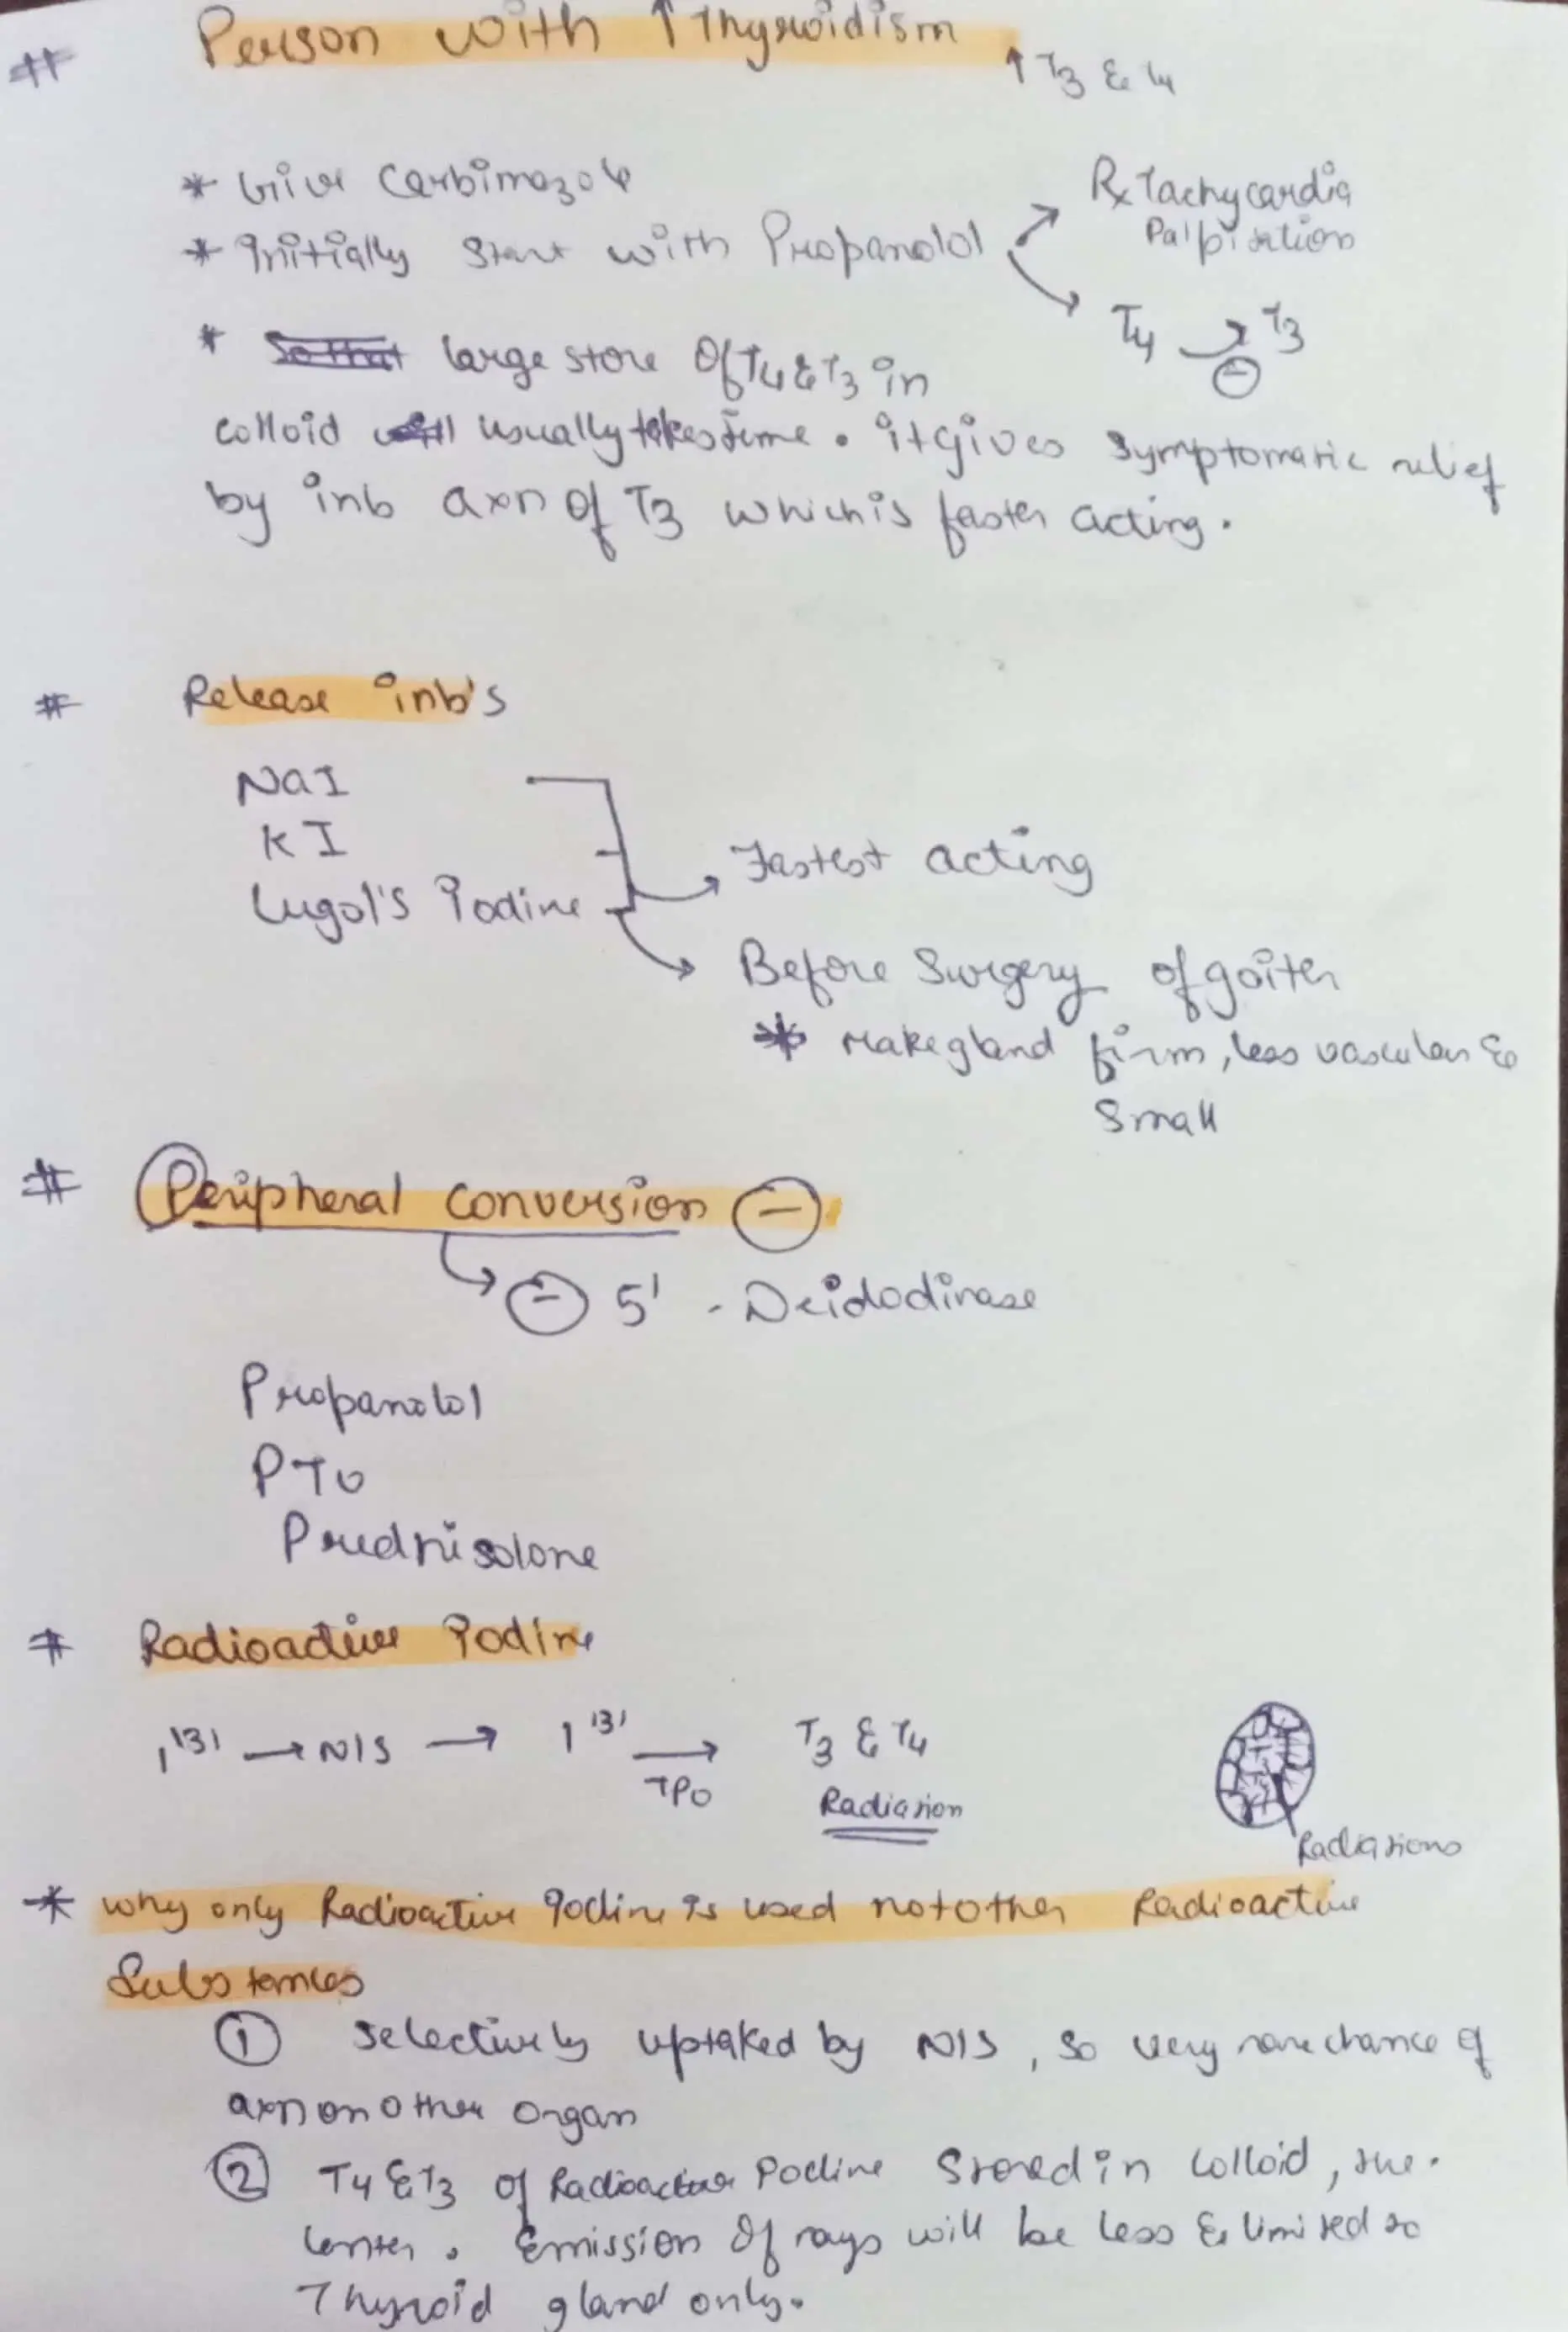 # Person with ↑Thyroidism
↑ T3 & T4
* Give Carbimazole
* Initially Start with Propanolol
Rx Tachycardia
Palpitation
T4 → T3
⊖
* So that large store Of T4 & T3 in
colloid will usually takes time. it gives Symptomatic relief
by inb axn of T3 which is faster acting.
# Release inb's
NaI
KI
Lugol's Iodine
→ Fastest acting
→ Before Surgery of goiter
* Make gland firm, less vascular &
Small
# Peripheral conversion ⊖
⊖ 5' - Deidodinase
Propanolol
PTU
Prednisolone
# Radioactive Iodine
I131 → NIS → I131 → T3 & T4
TPO
Radiation
Radiations
* Why only Radioactive Iodine is used not other Radioactive
Substances
① Selectively uptaked by NIS, so very rare chance of
axn on other organ
② T4 & T3 of Radioactive Iodine Stored in Colloid, the.
center. Emission Of rays will be less & limited to
Thyroid gland only.